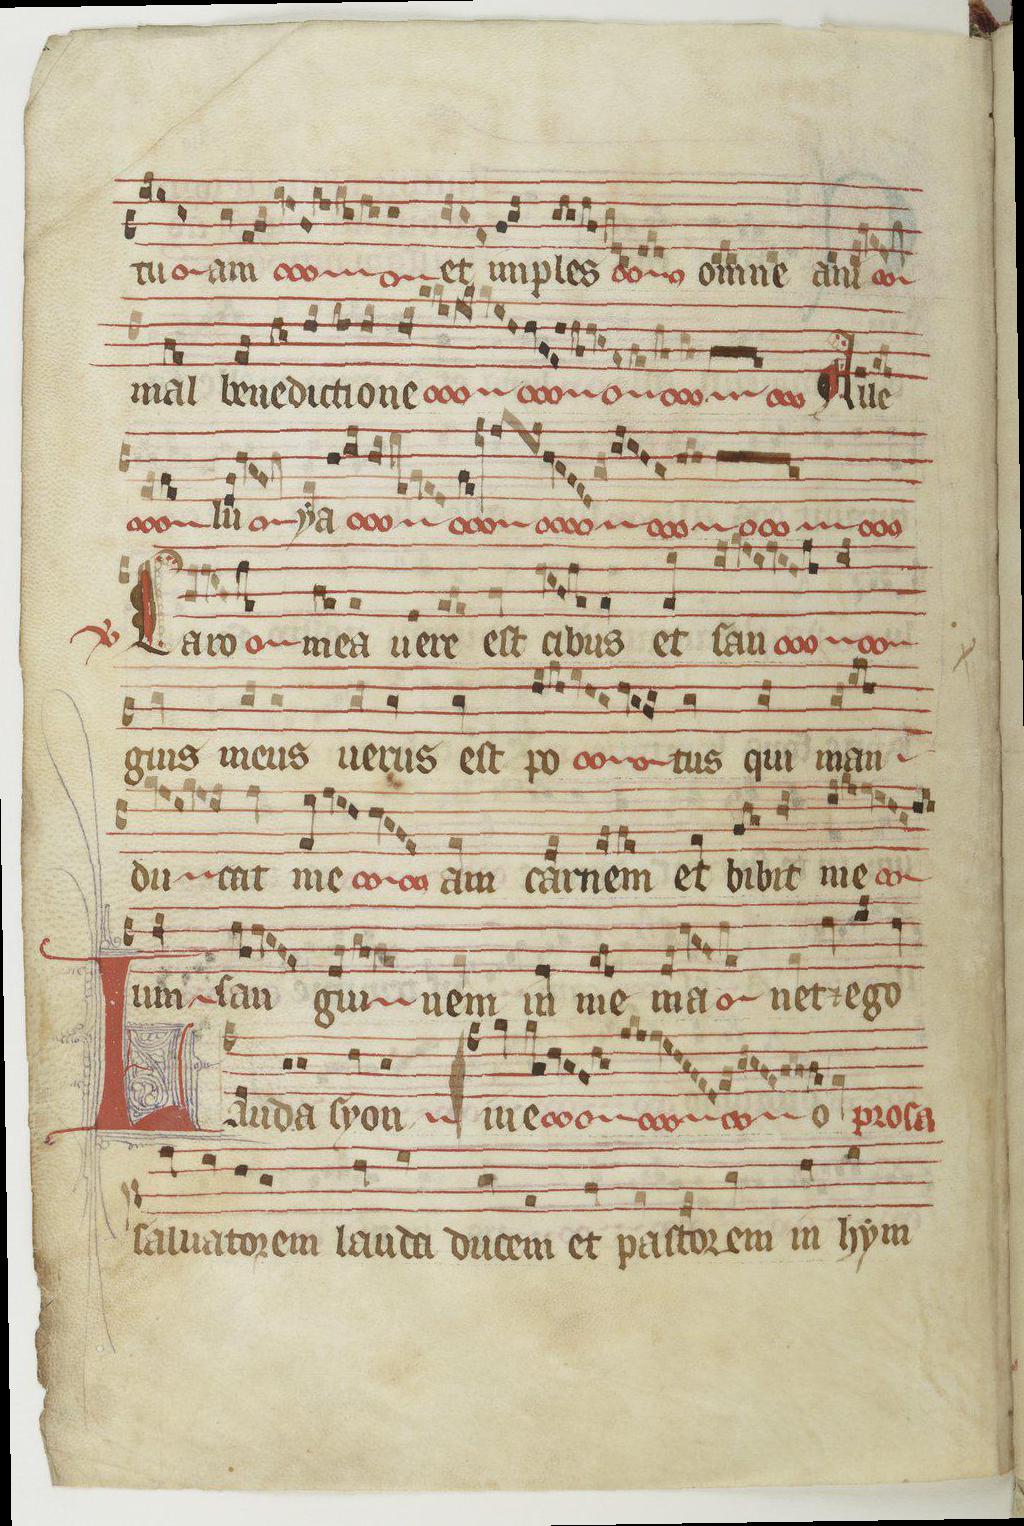 tu am et imples omne ani
mal benedictione Alle
lu ya
℣ Caro mea uere est cibus et san
guis meus uerus est po tus qui man
du cat me am carnem et bibit me
um san gui nem in me ma net ⁊ ego
Lauda syon in e o prosa
saluatorem lauda ducem et pastorem in hym